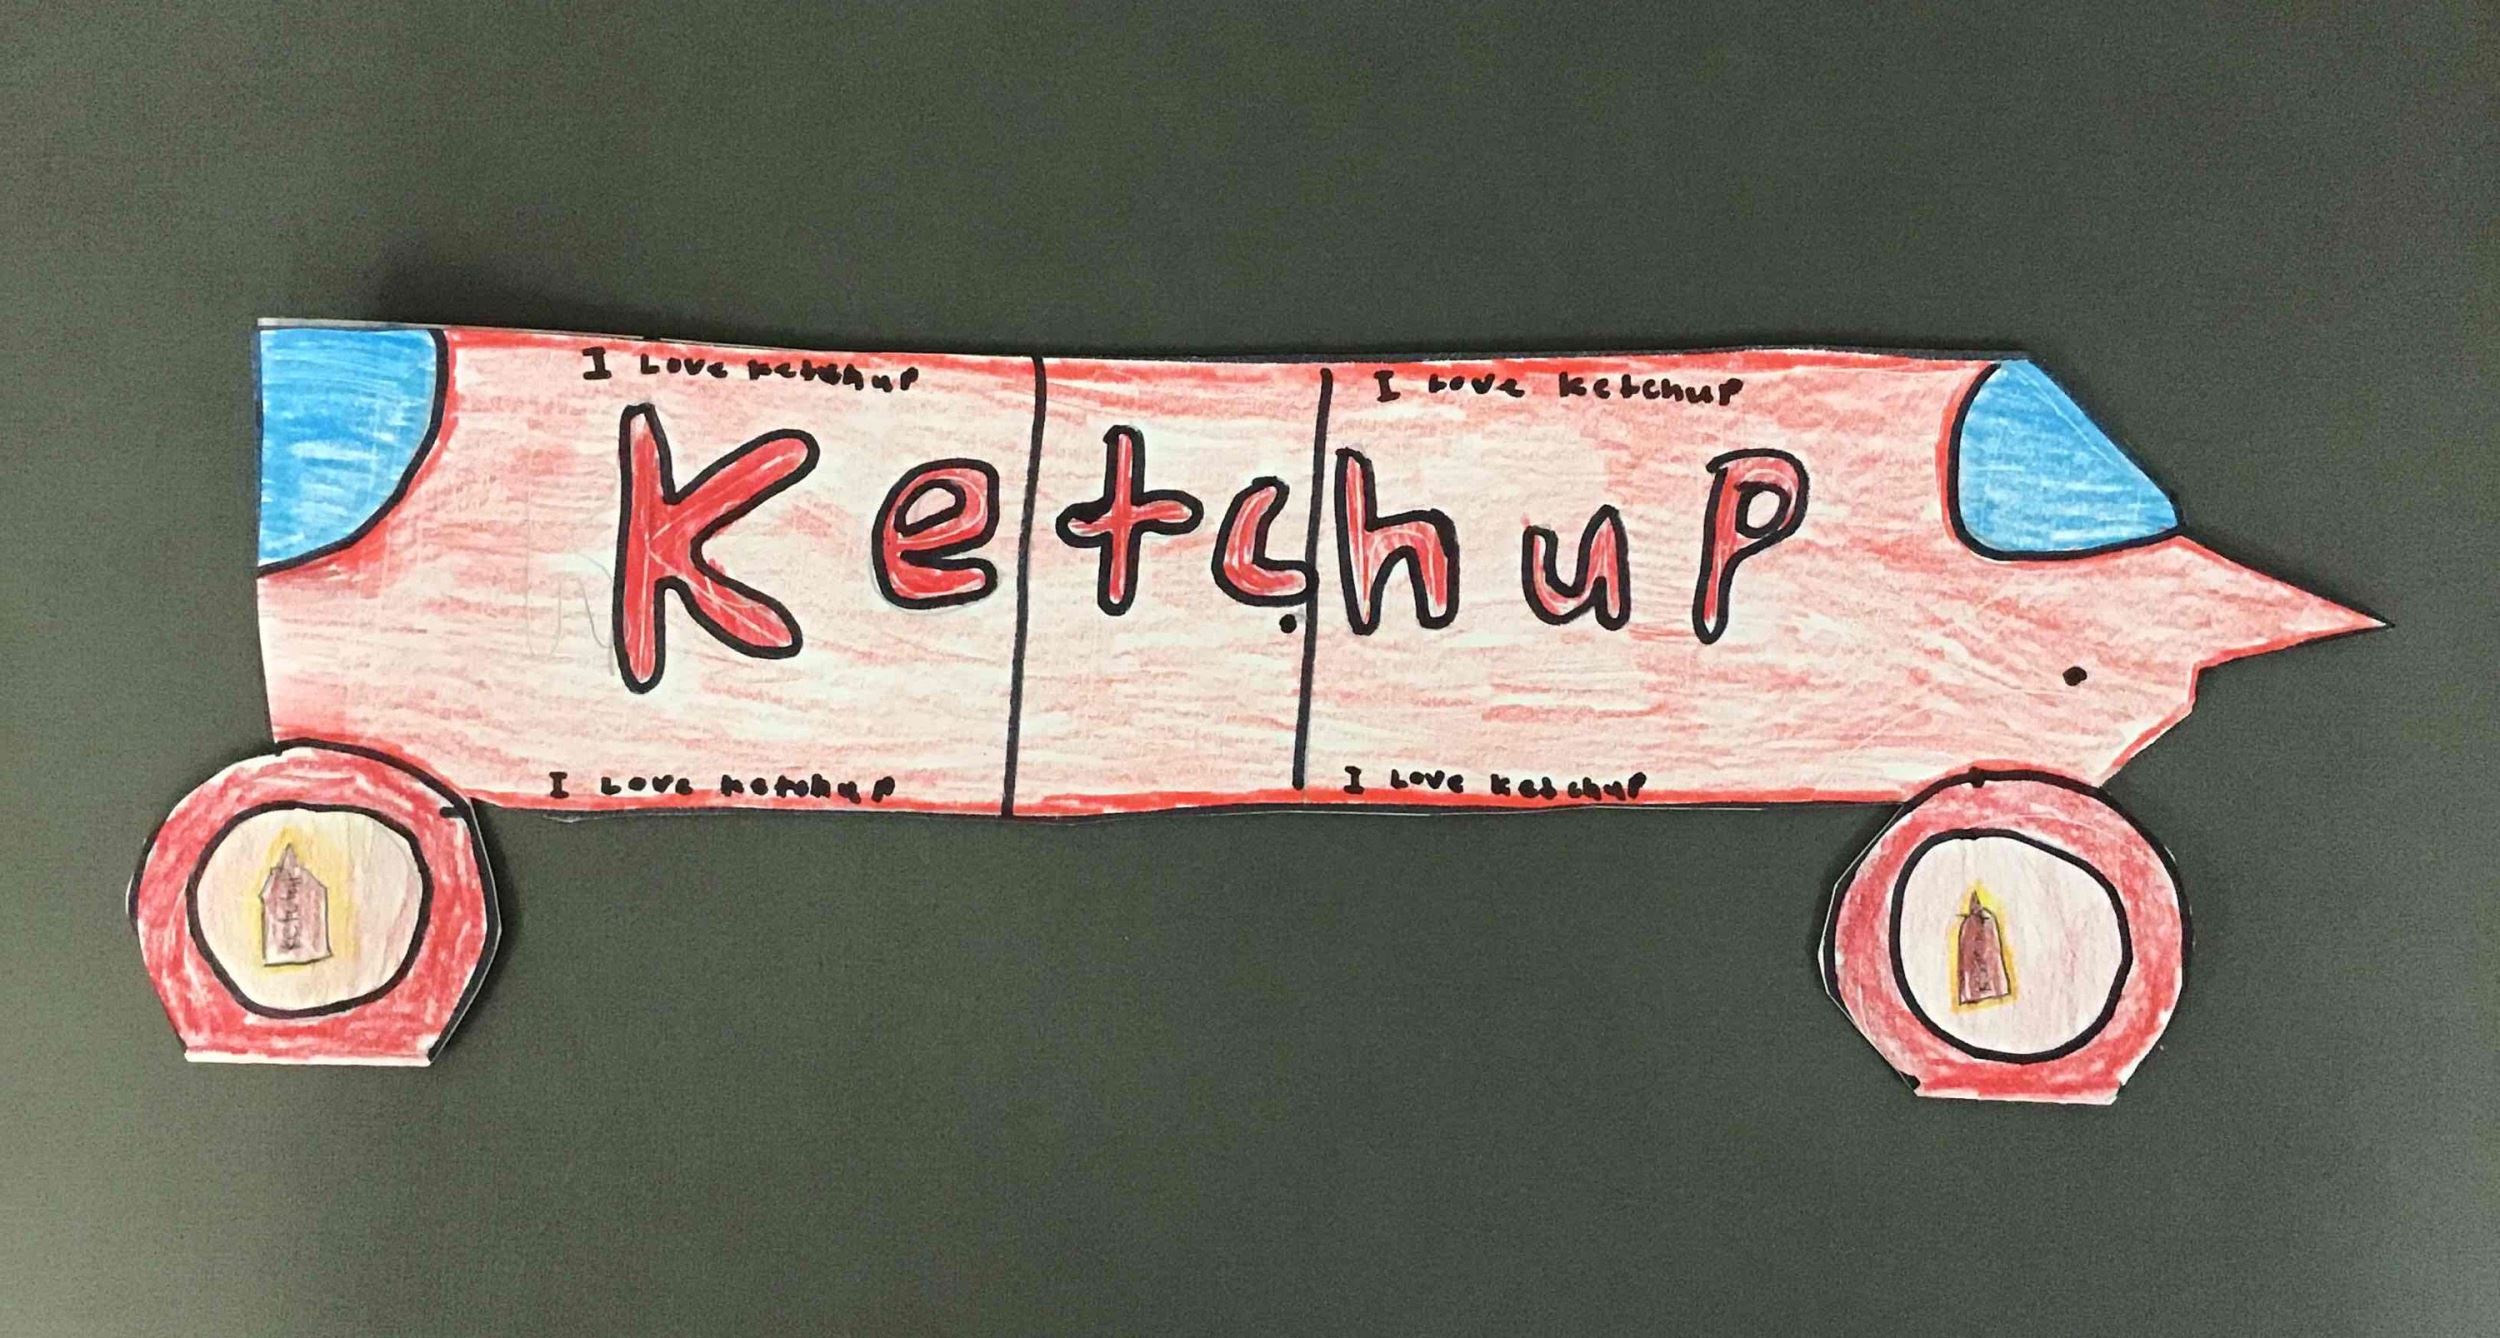 I Love ketchup
I Love ketchup
Ketchup
I Love ketchup
I Love ketchup
ketchup